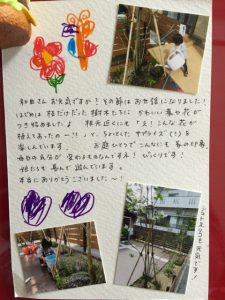 和田さんお元気ですか！その節はお世話になりました！
はじめは枝だけだった樹木たちに かわいい葉や花が
つき始めましたよ 根元近くにも「え！こんな花が
植えてあったの〜!!」って、ちょっとした サプライズ(？)を
楽しんでいます。 お庭ひとつで こんなにも 家の印象、
毎日の気分が 変わるものなんですね！びっくりです！
娘たちも 喜んで 遊んでいます。
本当に ありがとうございました〜！
も元気です！